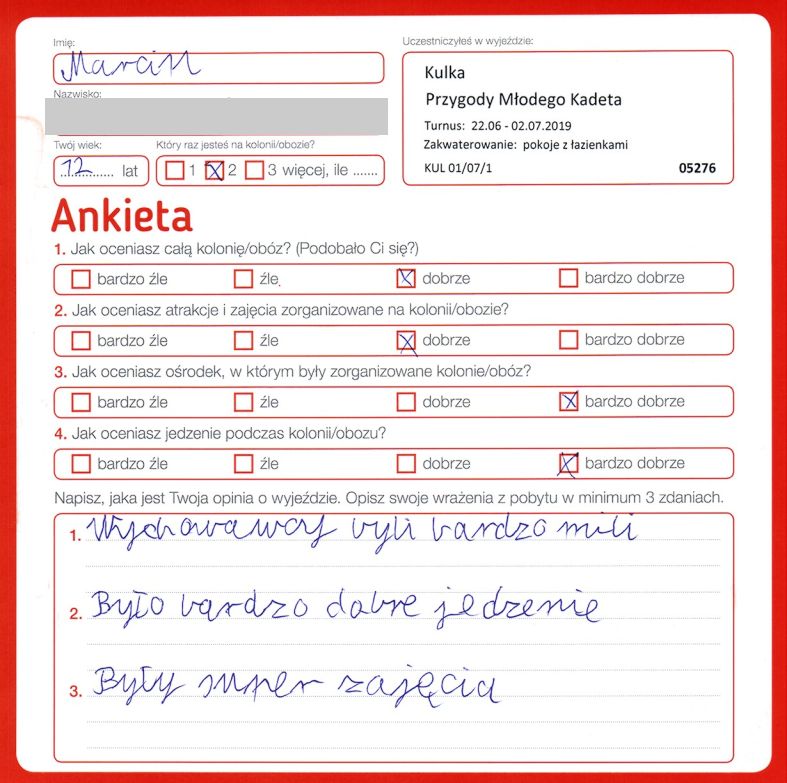 Imię:
Marcin
Nazwisko:
Twój wiek:
12 lat
Który raz jesteś na kolonii/obozie?
1 2 3 więcej, ile .......
Uczestniczyłeś w wyjeździe:
Kulka
Przygody Młodego Kadeta
Turnus: 22.06 - 02.07.2019
Zakwaterowanie: pokoje z łazienkami
KUL 01/07/1 05276
Ankieta
1. Jak oceniasz całą kolonię/obóz? (Podobało Ci się?)
bardzo źle źle dobrze bardzo dobrze
2. Jak oceniasz atrakcje i zajęcia zorganizowane na kolonii/obozie?
bardzo źle źle dobrze bardzo dobrze
3. Jak oceniasz ośrodek, w którym były zorganizowane kolonie/obóz?
bardzo źle źle dobrze bardzo dobrze
4. Jak oceniasz jedzenie podczas kolonii/obozu?
bardzo źle źle dobrze bardzo dobrze
Napisz, jaka jest Twoja opinia o wyjeździe. Opisz swoje wrażenia z pobytu w minimum 3 zdaniach.
1. Wychowawcy byli bardzo mili
2. Było bardzo dobre jedzenie
3. Były super zajęcia